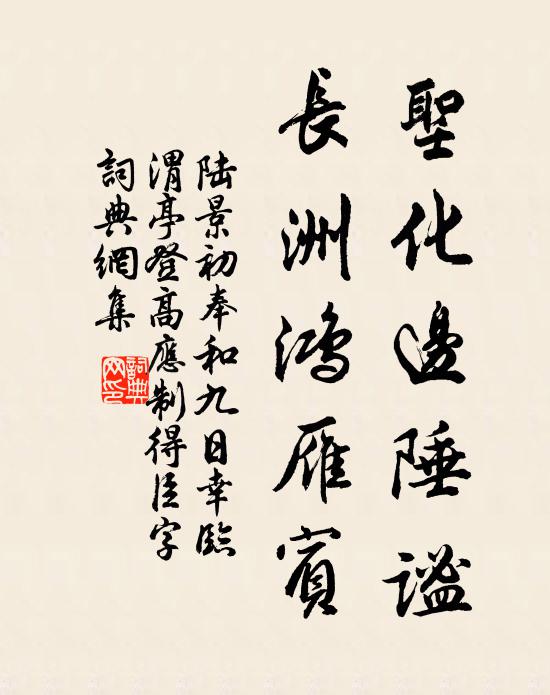 聖化邊陲謐
長洲鴻雁賓
陸景初奉和九日幸臨
渭亭登高應制得臣字
詞典網集
詞典
网印